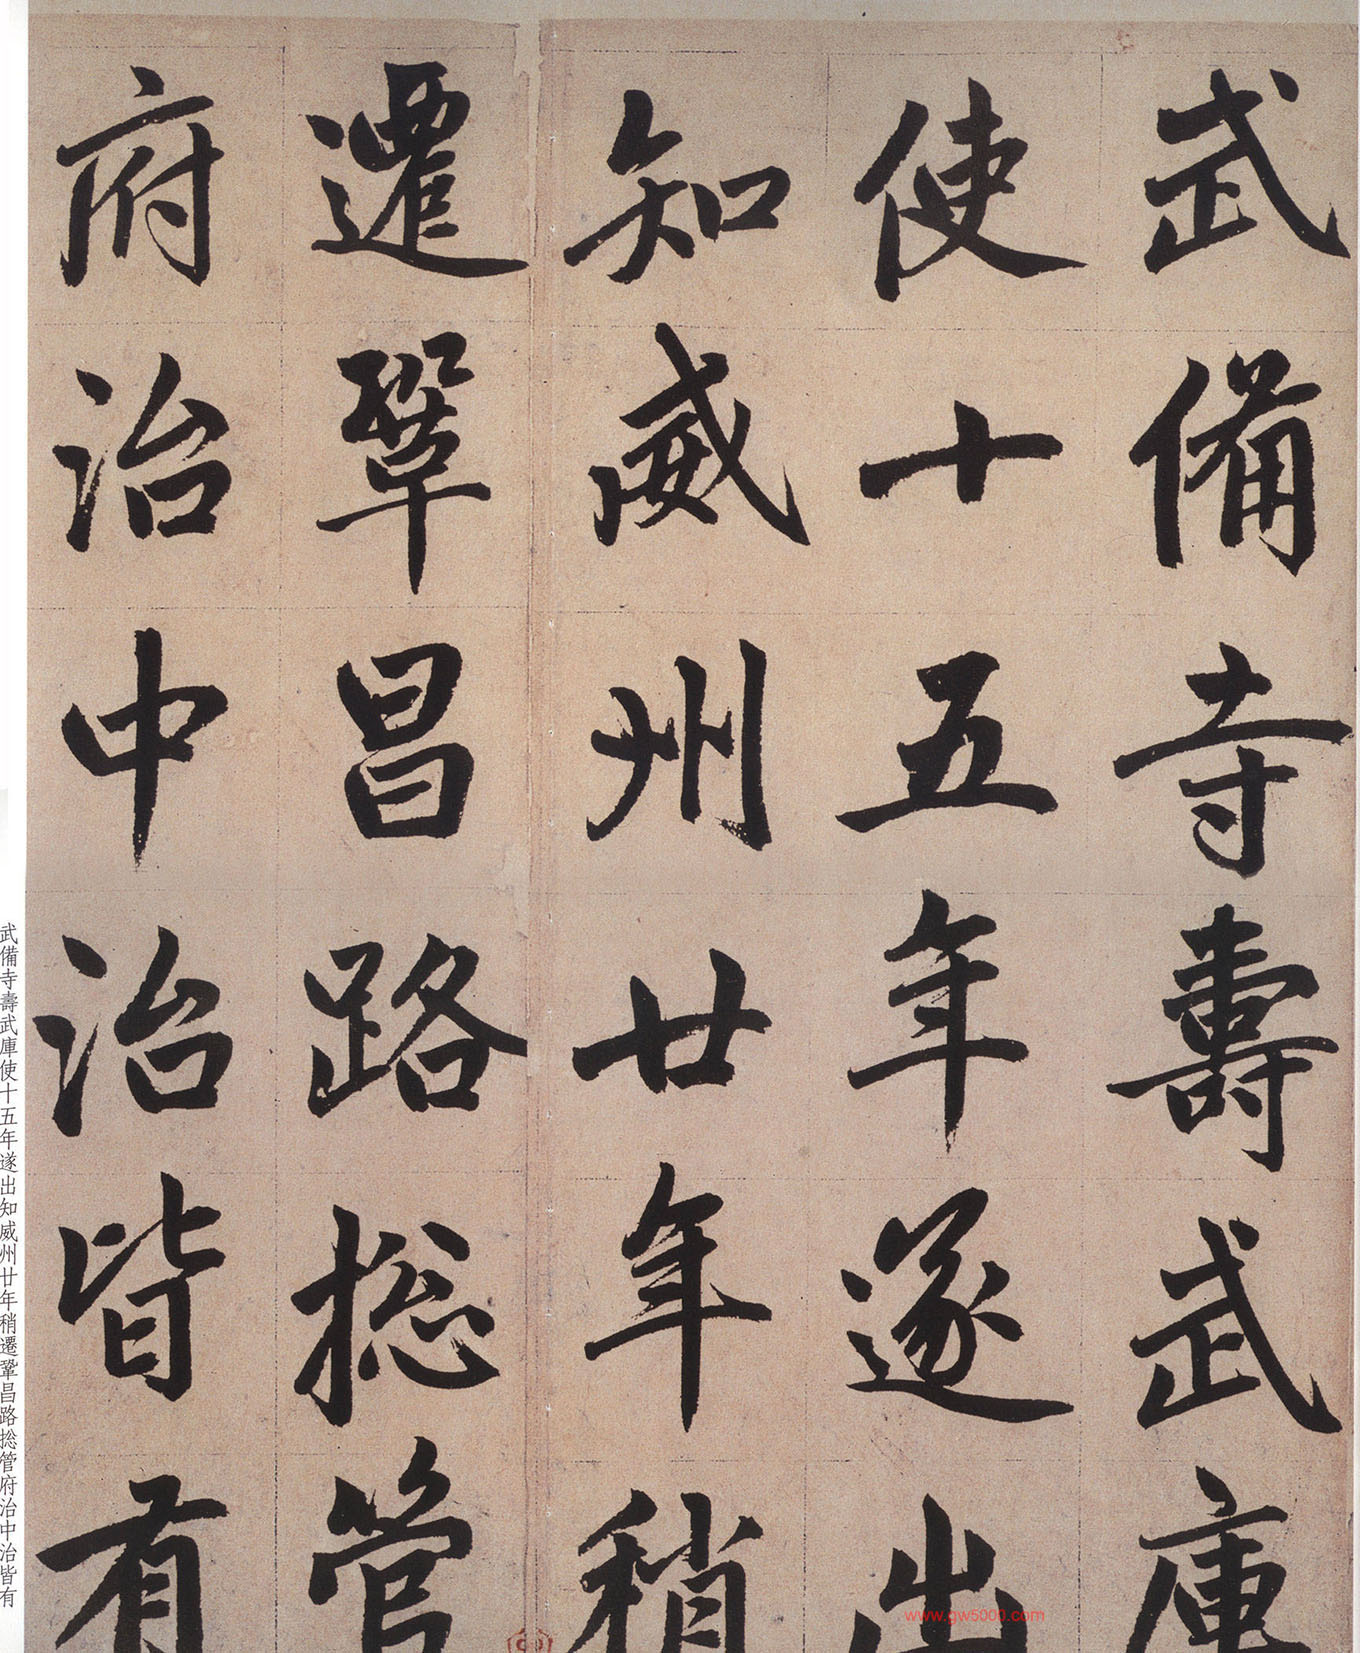 武備寺壽武庫
使十五年遂出
知威州廿年稍
遷鞏昌路捴管
府治中治皆有
武備寺壽武庫使十五年遂出知威州廿年稍遷鞏昌路捴管府治中治皆有
www.gw5000.com